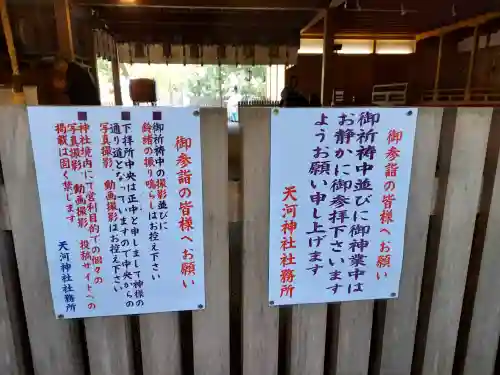 御参詣の皆様へお願い
御祈祷中並びに御神業中は
お静かに御参拝下さいます
ようお願い申し上げます
天河神社社務所
御参詣の皆様へお願い
御祈祷中の撮影並びに
鈴緒の振り鳴らしはお控え下さい
下拝所中央は正中と申しまして神様の
通り道となっていますので中央からの
写真撮影、動画撮影はお控え下さい
神社境内にて営利目的での個々の
写真撮影、動画撮影、投稿サイトへの
掲載は固く禁じます
天河神社社務所